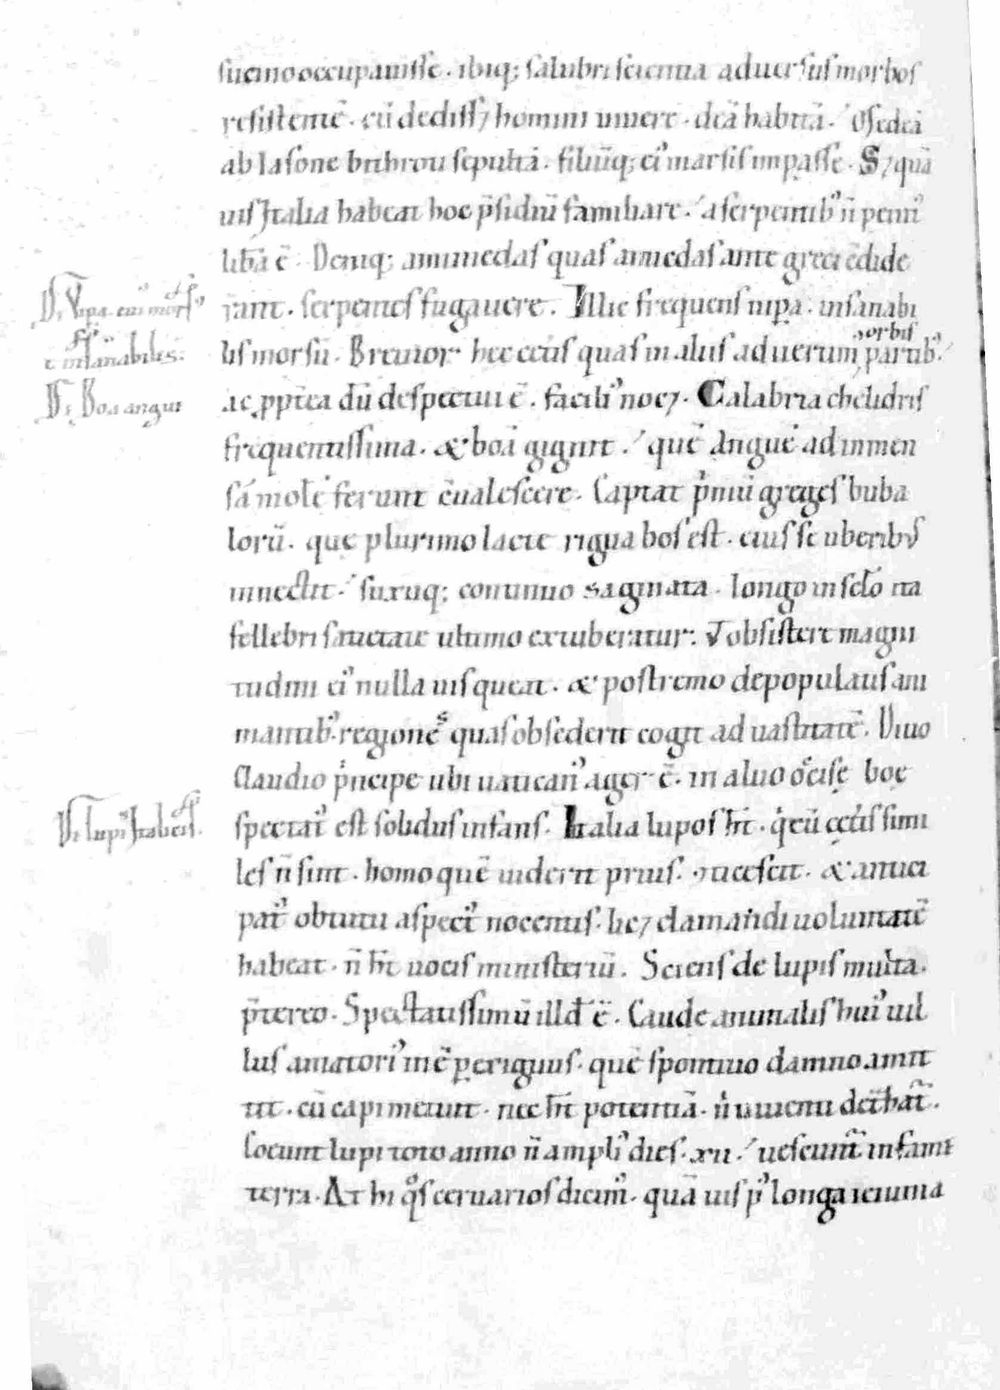 fucino occupauisse. ibiq; salubri scientia aduersus morbos
resistentē. cū dediss& homini uiuere. deā habitā. Medeā
ab Iasone buthroti sepultā. filiūq; ei' marsis impasse. S; quā
uis Italia habeat hoc p̄sidiū familiare. a serpentib' n̄ penit'
lib̄a ē. Deniq; amunclas quas amiclas ante greci cōdide
rant. serpentes fugauere. Illic frequens uipa. insanabi
De Vipa. cui' mors'
lis morsu. Breuior hec cet̄is quas in aliis aduertim; orbis partib'.
ē insanabiles.
ac ꝓpterea dū despectui ē. facili' noc&. Calabria chelidris
De Boa angui
frequentissima. & boā gignit. quē Anguē ad inmen
sā molē ferunt cōualescere. Captat p̄mū greges buba
lorū. que plurimo lacte rigua bos est. eius se uberib'
innectit. suxuq; continuo saginata. longo in sclo ita
fellebri satietate ultimo extuberatur. V obsistere magni
tudini ei' nulla uis queat. & postremo depopulatis ani
mantib'. regiones quas obsederit cogit ad uastitatē. Diuo
Claudio p̄ncipe ubi uatican' ager ē. in aluo occise boe
spectat' est solidus infans. Italia lupos h̄t. q̄ cū cet̄is simi
De lupis Italicis.
les n̄ sint. homo quē uiderit prius. cticescit. & antici
pat' obtutu aspect' nocentis. lic& clamandi uoluntatē
habeat. n̄ h̄t uocis ministeriū. Sciens de lupis multa.
p̄tereo. Spectatissimū illd ē. Caude animalis hui' uil
lus amatori' inē p̱eriguus. quē spontiuo damno amit
tit. cū capi metuit. nec h̄t potentiā. n̄ uiuenti det̄hat'.
Coeunt lupi toto anno n̄ ampli' dies. xii. uescunt' in fame
terra. At hi q°s ceruarios dicim'. quā uis p' longa ieiunia